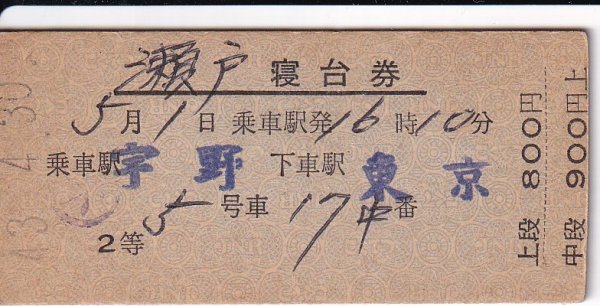 瀬戸 寝台券
5月1日 乗車駅発16時10分
乗車駅 宇野 下車駅 東京
2等 5号車 17中番
上段 800円
中段 900円上
43.4.30.